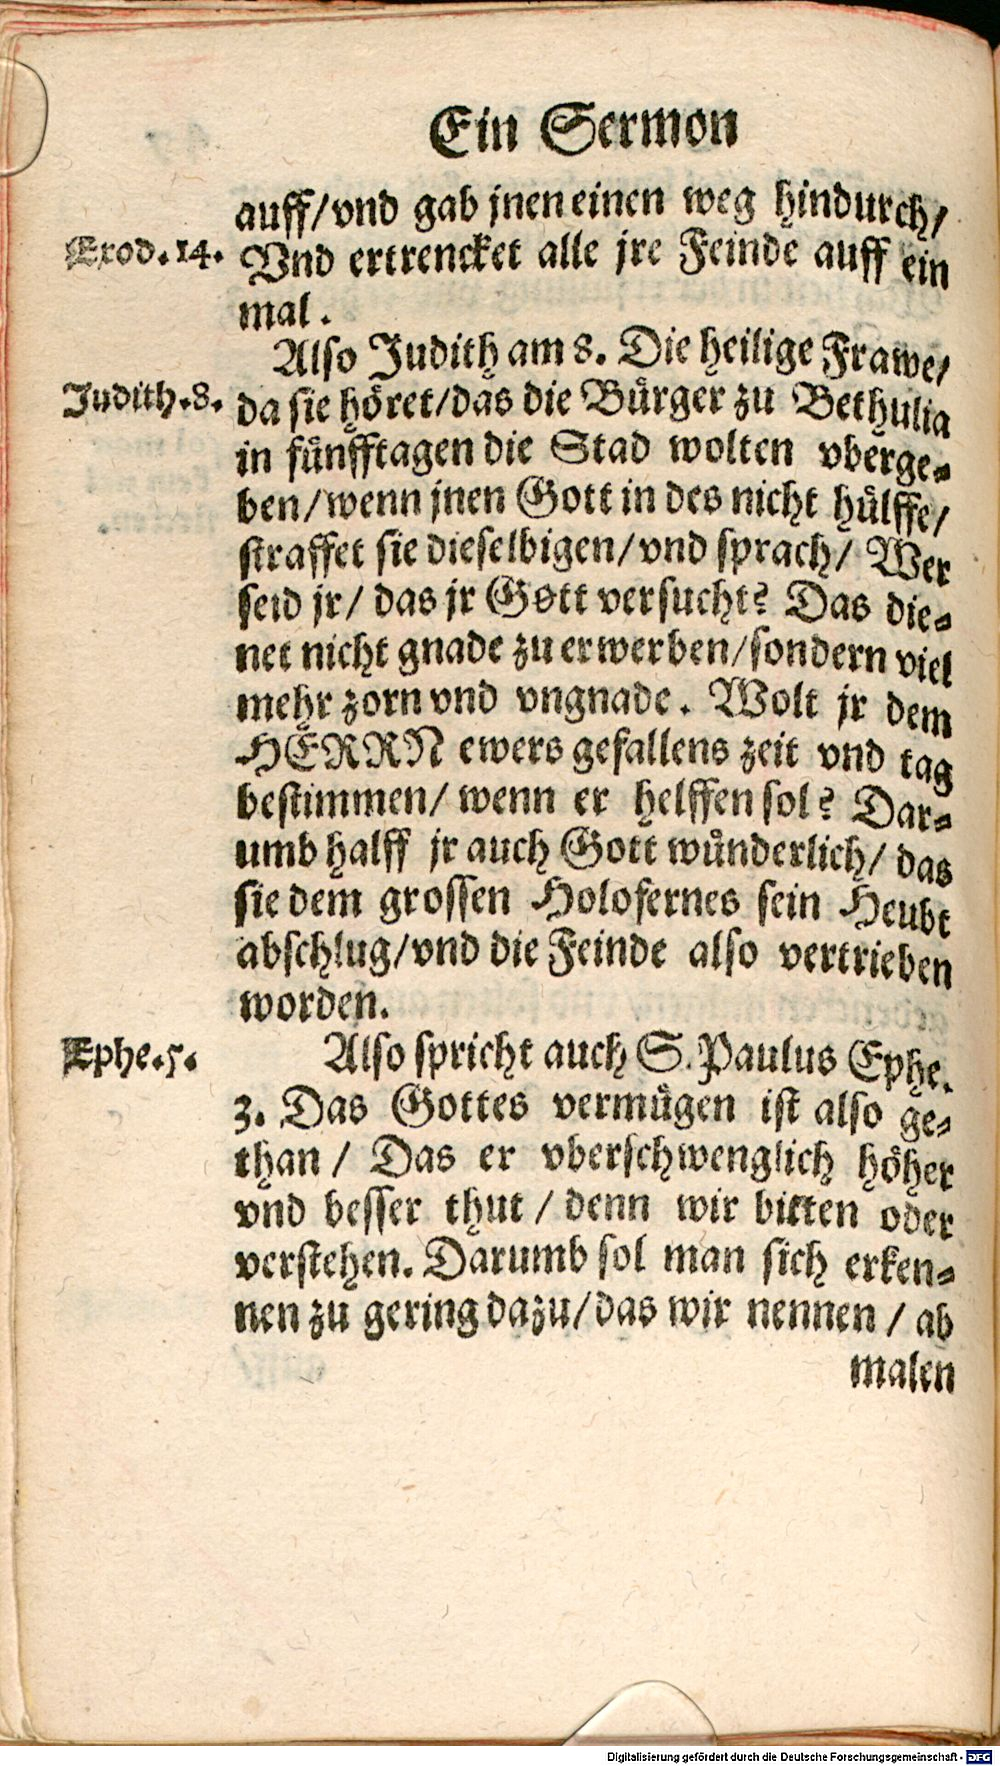 Ein Sermon
auff/vnd gab jnen einen weg hindurch/
Exod.14.
Vnd ertrencket alle jre Feinde auff ein
mal.
Also Judith am 8. Die heilige Frawe/
Judith.8.
da sie höret/das die Bürger zu Bethulia
in fünfftagen die Stad wolten vberge-
ben/wenn jnen Gott in des nicht hülffe/
straffet sie dieselbigen/vnd sprach/ Wer
seid jr/ das jr Gott versucht? Das die-
net nicht gnade zu erwerben/sondern viel
mehr zorn vnd vngnade. Wolt jr dem
HERRN ewers gefallens zeit vnd tag
bestimmen/ wenn er helffen sol? Dar-
umb halff jr auch Gott wünderlich/ das
sie dem grossen Holofernes sein Heubt
abschlug/vnd die Feinde also vertrieben
worden.
Ephe.5.
Also spricht auch S. Paulus Ephe.
3. Das Gottes vermügen ist also ge-
than/ Das er vberschwenglich höher
vnd besser thut/ denn wir bitten oder
verstehen. Darumb sol man sich erken-
nen zu gering dazu/das wir nennen/ ab
malen
Digitalisierung gefördert durch die Deutsche Forschungsgemeinschaft - DFG